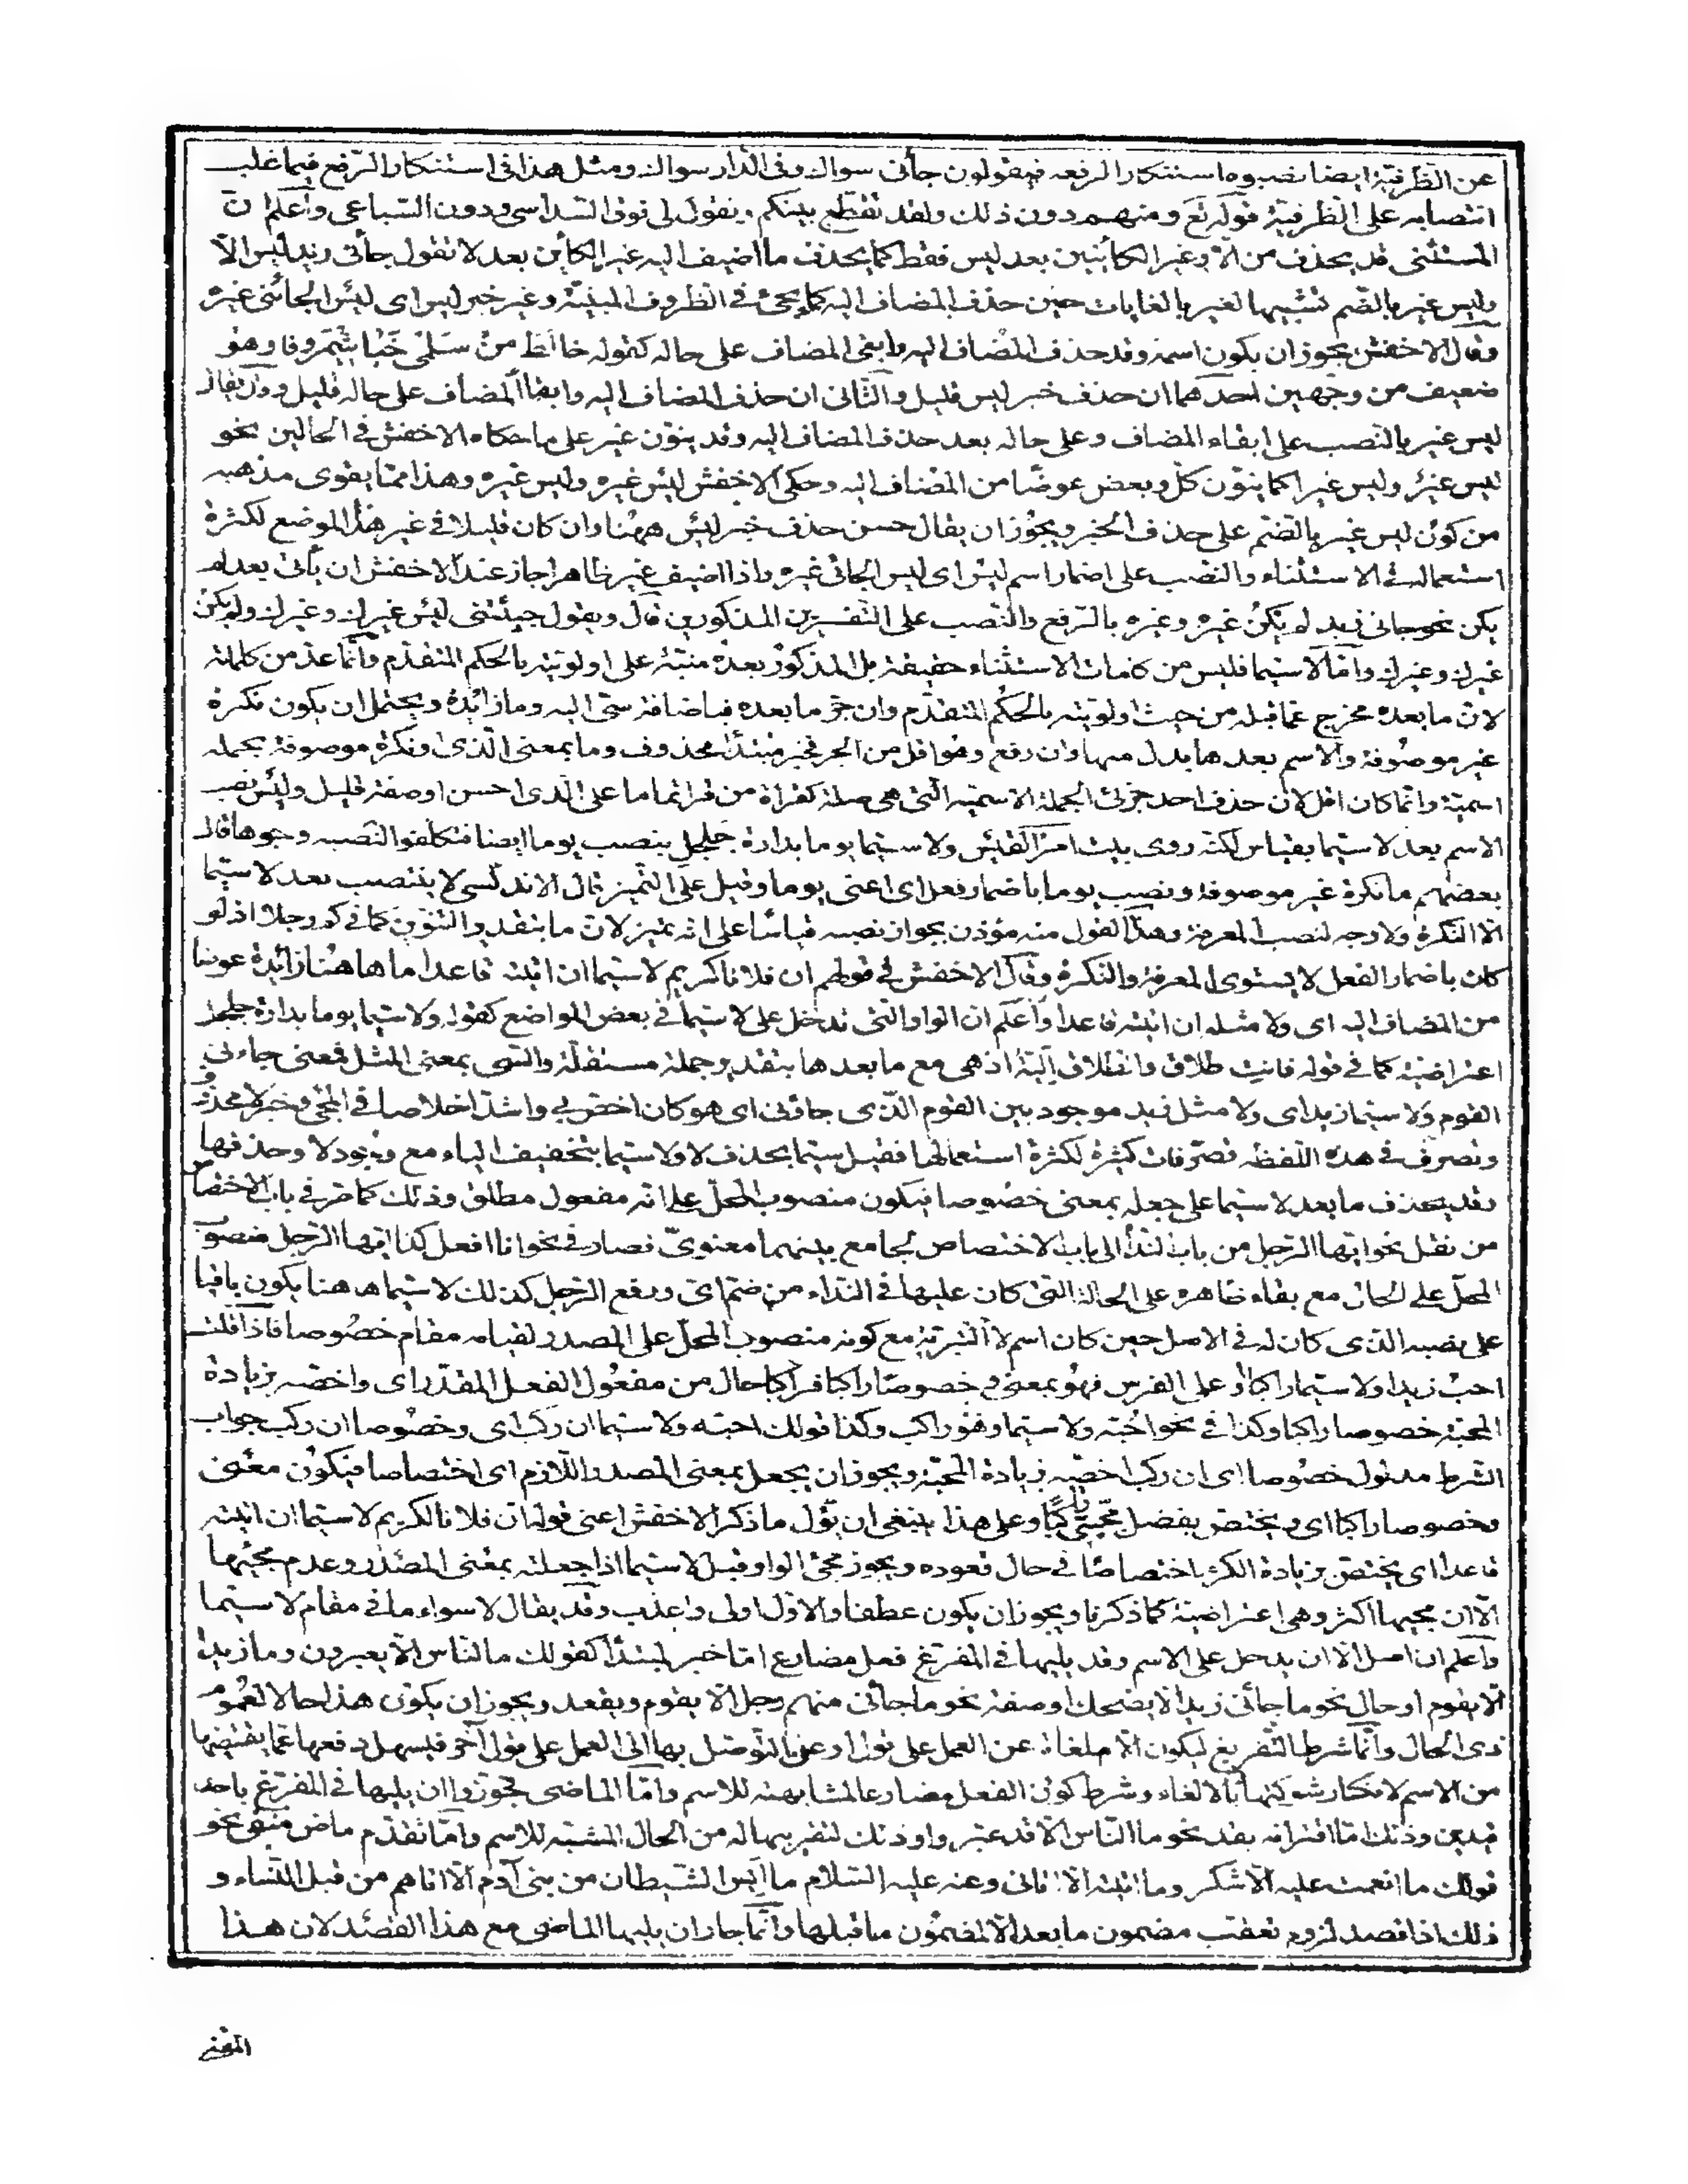 عن الظرفية ايضا نصبوه استنكارا لرفعه فيقولون جائنى سواك وفى الدار سواك ومثل هذا فى استنكار الرفع فيما غلب
انتصابه على الظرفية قوله تع ومنهم دون ذلك ولقد تقطع بينكم ويقول لى فوق السداسى ودون السباعى واعلم ان
المستثنى قد يحذف من الا وغير الكائنين بعد ليس فقط كما يحذف ما اضيف اليه غير الكاين بعد لا تقول جائنى زيد ليس الا
وليس غير بالضم تشبيها لغير بالغايات حين حذف المضاف اليه كما يجئ فى الظروف المبنية وغير خبر ليس اى ليس الجائنى غيره
وقال الاخفش يجوز ان يكون اسمه وقد حذف المضاف اليه وابقى المضاف على حاله كقوله خالط من سلمى خياشيم وفا وهو
ضعيف من وجهين احدهما ان حذف خبر ليس قليل والثانى ان حذف المضاف اليه وابقاء المضاف على حاله قليل وقد يقال
ليس غير بالنصب على ابقاء المضاف وعلى حاله بعد حذف المضاف اليه وقد ينون غير على ما حكاه الاخفش فى الحالين نحو
ليس غير وليس غيرا كما ينون كل وبعض عوضا من المضاف اليه وحكى الاخفش ليس غيره وليس غيره وهذا مما يقوى مذهبه
من كون ليس غير بالضم على حذف الخبر ويجوز ان يقال حسن حذف خبر ليس ههنا وان كان قليلا فى غير هذا الموضع لكثرة
استعماله فى الاستثناء والنصب على اضمار اسم ليس اى ليس الجائى غيره واذا اضيف غير ظاهرا جاز عند الاخفش ان يأتى بعد لم
يكن نحو جائنى زيد لم يكن غيره وغيره بالرفع والنصب على التفسيرين المذكورين قال ويقول جيئتنى ليس غيرك وغيرك ولم يكن
غيرك وغيرك واما لاسيما فليس من كلمات الاستثناء حقيقة بل المذكور بعده منبئه على اولويته بالحكم المتقدم وانما عد من كلماته
لان ما بعده مخرج عما قبله من حيث اولويته بالحكم المتقدم وان جر ما بعده فباضافة سى اليه وما زائدة ويحتمل ان يكون نكرة
غير موصوفة والاسم بعدها بدل منها وان رفع وهو اقل من الجر فخبر مبتدأ محذوف وما بمعنى الذى او نكرة موصوفة بجملة
اسمية وانما كان اقل لان حذف احد جزئى الجملة الاسمية التى هى صلة كقراءة من قرا تماما على الذى احسن او صفة قليل وليس نصب
الاسم بعد لاسيما بقياس لكنه روى بيت امرء القيس ولاسيما يوما بدارة جلجل بنصب يوما ايضا فتكلفوا النصبه وجوها قال
بعضهم ما نكرة غير موصوفة ونصب يوما باضمار فعل اى اعنى يوما وقيل على التميز قال الاندلسى لا ينتصب بعد لاسيما
الا النكرة ولا وجه لنصب المعرفة وهذا القول منه مؤذن بجواز نصبه قياسا على انه تميز لان ما بتقدير التنوين كما فى كم رجلا اذ لو
كان باضمار الفعل لا يستوى المعرفة والنكرة وقال الاخفش فى قولهم ان فلانا كريم لاسيما ان اتيته قاعدا ما هاهنا زائدة عوضا
من المضاف اليه اى ولا مثله ان اتيته قاعدا واعلم ان الواو التى تدخل على لاسيما فى بعض المواضع كقوله ولاسيما يوما بدارة جلجل
اعتراضية كما فى قوله فانت طلاق والطلاق الية اذ هى مع ما بعدها بتقدير جملة مستقلة والسى بمعنى المثل فمعنى جاءنى
القوم ولاسيما زيد اى ولا مثل زيد موجود بين القوم الذى جاؤنى اى هو كان اخص بى واشد اخلاصا فى المجئ وخبر لا محذوف
وتصرف فى هذه اللفظه تصرفات كثيرة لكثرة استعمالها فقيل سيما بحذف لا ولاسيما بتخفيف الياء مع وجود لا وحذفها
وقد يحذف ما بعد لاسيما على جعله بمعنى خصوصا فيكون منصوب المحل على انه مفعول مطلق وذلك كما مر فى باب الاختصاص
من نقل نحو ايها الرجل من باب النداء الى باب الاختصاص لجامع بينهما معنوى فصار فى نحو انا افعل كذا ايها الرجل منصوب
المحل على الحال مع بقاء ظاهره على الحالة التى كان عليها فى النداء من ضم اى ورفع الرجل كذلك لاسيما هنا يكون باقيا
على نصبه الذى كان له فى الاصل حين كان اسم لا التبرئة مع كونه منصوب المحل على المصدر لقيامه مقام خصوصا فاذا قلت
احب زيدا ولاسيما راكبا او على الفرس فهو بمعنى وخصوصا راكبا فراكبا حال من مفعول الفعل المقدر اى واخصه بزيادة
المحبة خصوصا راكبا وكذا فى نحو احبه ولاسيما وهو راكب وكذا قولك احبه ولاسيما ان ركب اى وخصوصا ان ركب جواب
الشرط مدلول خصوصا اى ان ركب اخصه بزيادة المحبة ويجوز ان يجعل بمعنى المصدر اللازم اى اختصاصا فيكون معنى
وخصوصا راكبا اى ويختص بفضل محبتى راكبا وعلى هذا ينبغى ان يؤل ما ذكر الاخفش اعنى قوله ان فلانا لكريم لاسيما ان اتيته
قاعدا اى يختص بزيادة الكرم اختصاصا فى حال قعوده ويجوز مجئ الواو قبل لاسيما اذا جعلته بمعنى المصدر وعدم مجيئها
الا ان مجيئها اكثر وهى اعتراضية كما ذكرنا ويجوز ان يكون عطفا والاول اولى واعذب وقد يقال لا سواء ما فى مقام لاسيما
واعلم ان اصل الا ان يدخل على الاسم وقد يليها فى المفرغ فعل مضارع اما خبر لمبتدأ كقولك ما الناس الا يعبرون وما زيد
الا يقوم او حال نحو ما جائنى زيد الا يضحك او صفة نحو ما جائنى منهم رجل الا يقوم ويقعد ويجوز ان يكون هذا حالا لعموم
ذى الحال وانما شرط التفريغ ليكون الا ملغاة عن العمل على قول او عن التوصل بها الى العمل على قول آخر فيسهل دفعها عما يقتضيها
من الاسم لانكسار شوكتها بالالغاء وشرط كون الفعل مضارعا لمشابهته للاسم واما الماضى فجوزوا ان يليها فى المفرغ باحد
قيدين وذلك اما اقترانه بقد نحو ما الناس الا قد عبروا وذلك لتقريبها له من الحال المشبه للاسم واما تقدم ماض منفى نحو
قولك ما انعمت عليه الا شكر وما اتيته الا اتانى وعنه عليه السلام ما ايس الشيطان من بنى آدم الا اتاهم من قبل النساء و
ذلك اذا قصد لزوم تعقب مضمون ما بعد الا لمضمون ما قبلها وانما جاز ان يليها الماضى مع هذا القصد لان هذا